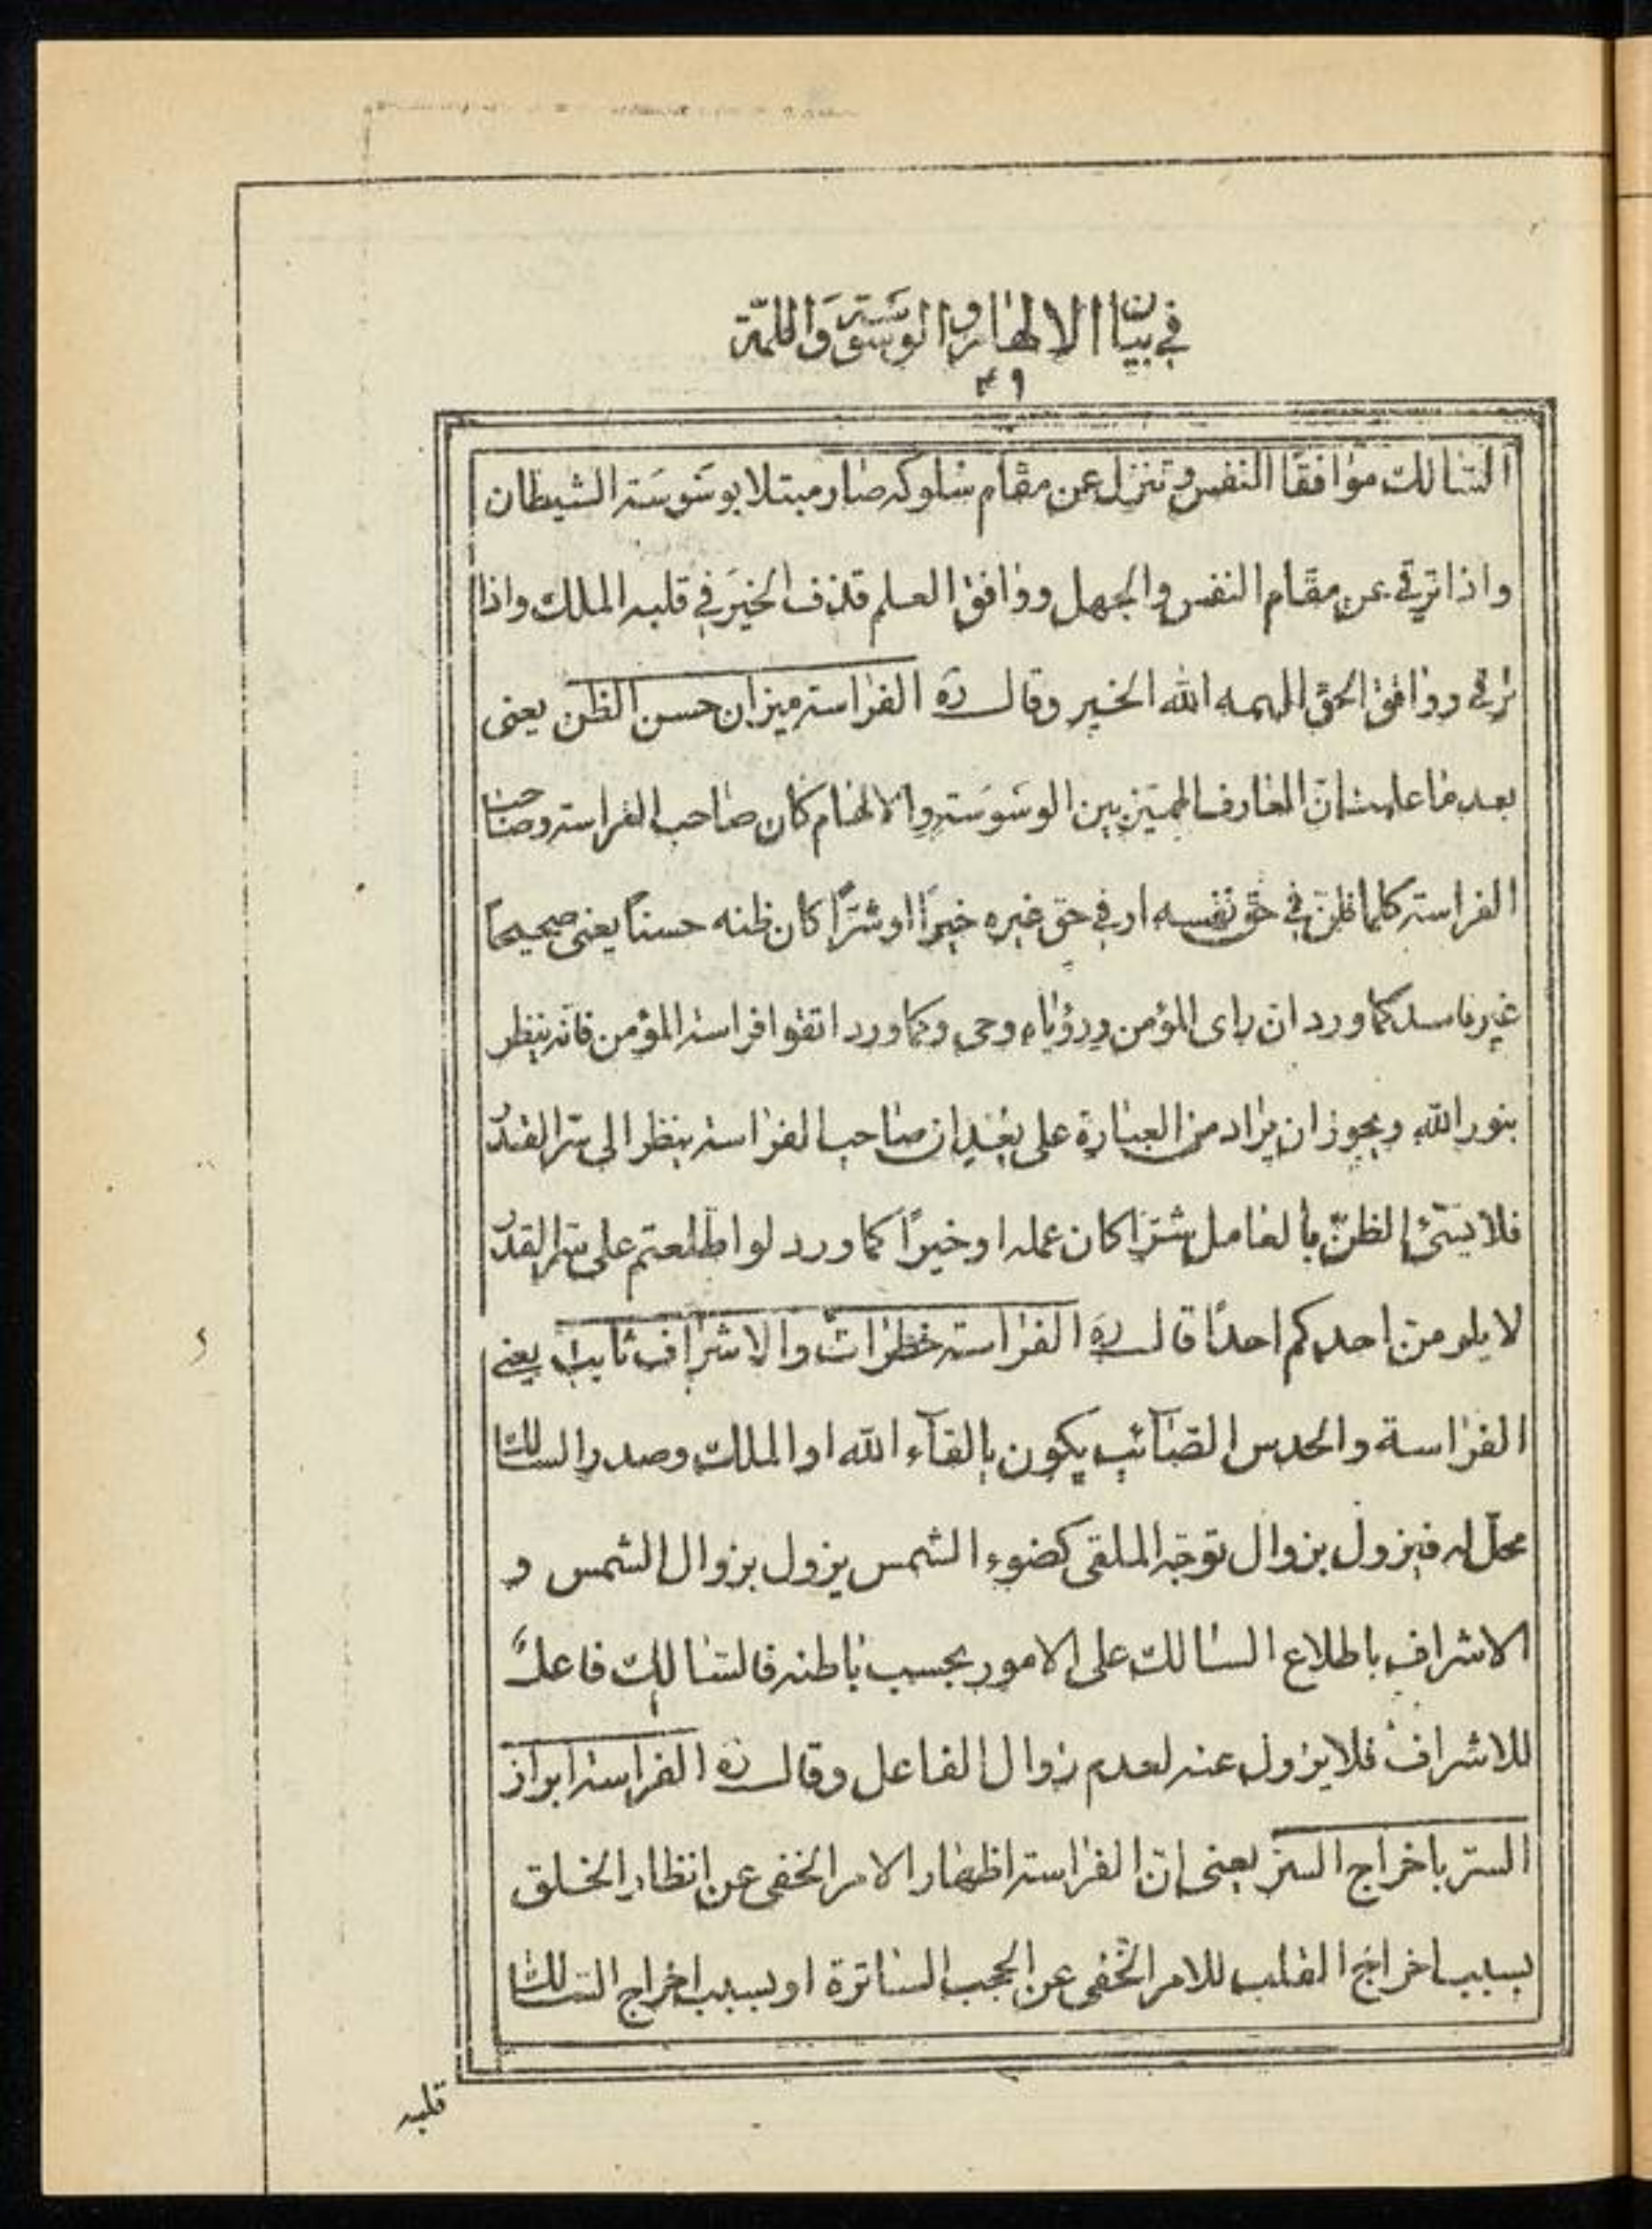 في بيان الالهام والوسوسة واللمّة
٤٩
السّالك موافقًا النفس وتنزل عن مقام سلوكه صار مبتلا بوسَوسَة الشيطان
واذا ترقى عن مقام النفس والجهل ووافق العلم قذف الخيَر في قلبه الملك واذا
ترقى ووافق الحقّ الهمه الله الخير وقال ره الفراسة ميزان حسن الظن يعنى
بعد ما علمت انّ العارف المميّز بين الوسَوسَة والالهام كان صاحب الفراسة وصاحب
الفراسة كلما ظنّ في حق نفسه او في حق غيره خيرًا او شرًّا كان ظنه حسناً يعنى صحيحاً
غير فاسد كما ورد ان راى المؤمن ورؤياه وحى وكما ورد اتقوا فراسة المؤمن فانه ينظر
بنور الله ويجوز ان يراد من العبارة على بُعْدٍ ان صاحب الفراسة ينظر الى سرّ القدر
فلا يسئ الظنّ بالعامل شرّا كان عمله او خيرًا كما ورد لو اطّلعتم على سرّ القدر
لا يلومنّ احدكم احدًا قال ره الفراسة خطرات والاشراف ثابت يعنے
الفراسة والحدس الصّائب يكون بالقآء الله او الملك وصدر السالك
محلّ له فيزول بزوال توجّه الملقى كضوء الشمس يزول بزوال الشمس و
الاشراف باطلاع السالك على الامور بحسب باطنه فالسّالك فاعلٌ
للاشراف فلا يزول عنه لعدم زوال الفاعل وقال ره الفراسة ابراز
السّر باخراج السرّ يعنى انّ الفراسة اظهار الامر الخفى عن انظار الخلق
بسبب اخراج القلب للامر الخفى عن الحجب الساترة او بسبب اخراج السّالك
قلبه